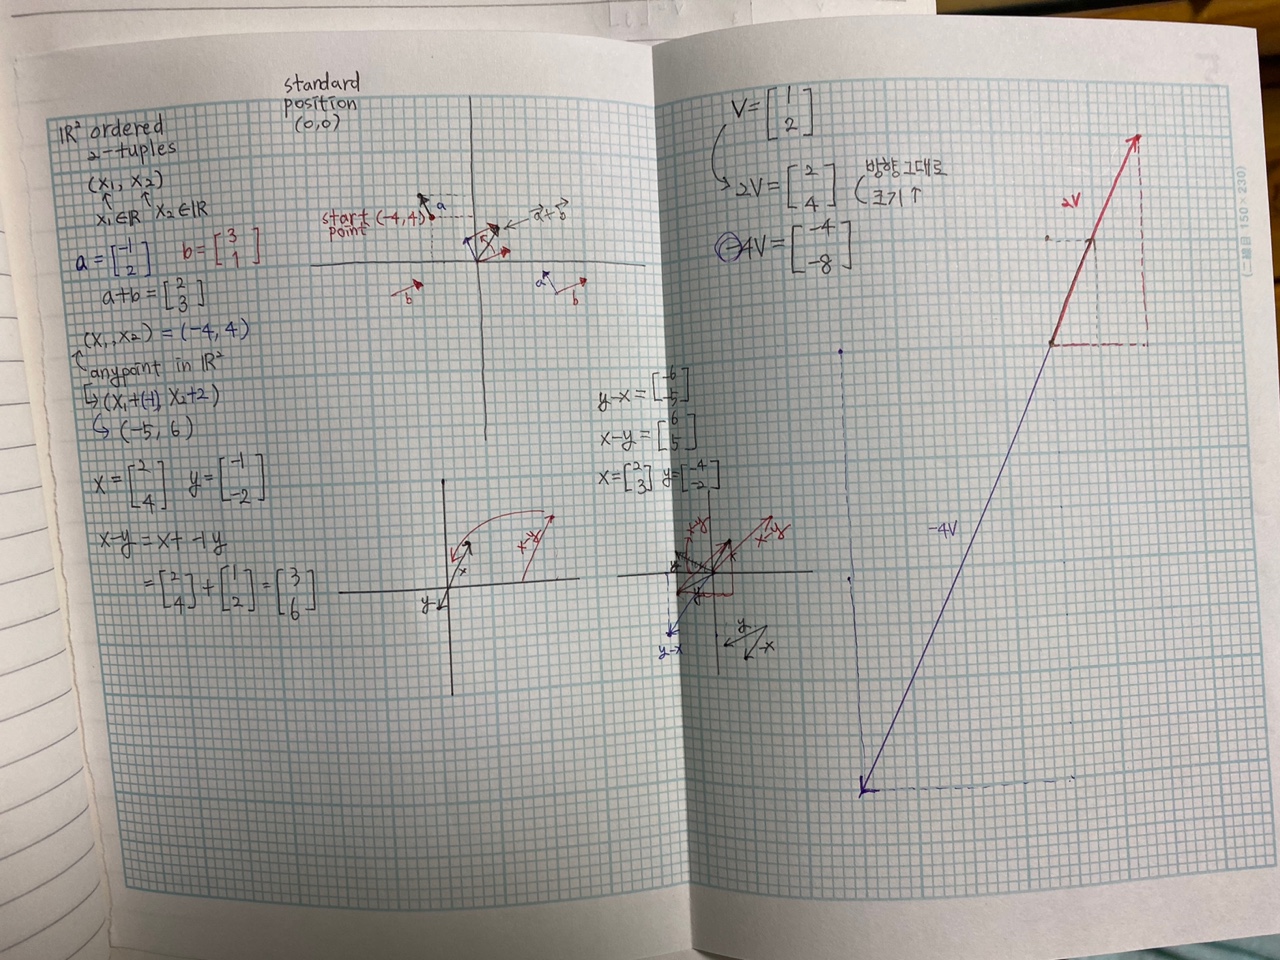 standard
position
(0,0)
ℝ² ordered
2-tuples
(x₁, x₂)
x₁∈ℝ x₂∈ℝ
a=[-1 2] b=[3 1]
a+b=[2 3]
(x₁,x₂)=(-4,4)
any point in ℝ²
(x₁+(-1), x₂+2)
(-5, 6)
x=[2 4] y=[-1 -2]
x-y=x+ -1y
=[2 4]+[1 2]=[3 6]
start (-4,4)
point
a
a⃗+b⃗
b
a
b
x-y
x
y
y-x=[-6 -5]
x-y=[6 5]
x=[2 3] y=[-4 -2]
x-y
x-y
x
y
y-x
y
-x
V=[1 2]
2V=[2 4] (방향 그대로
크기↑
-4V=[-4 -8]
2V
-4V
(二細目 150×230)